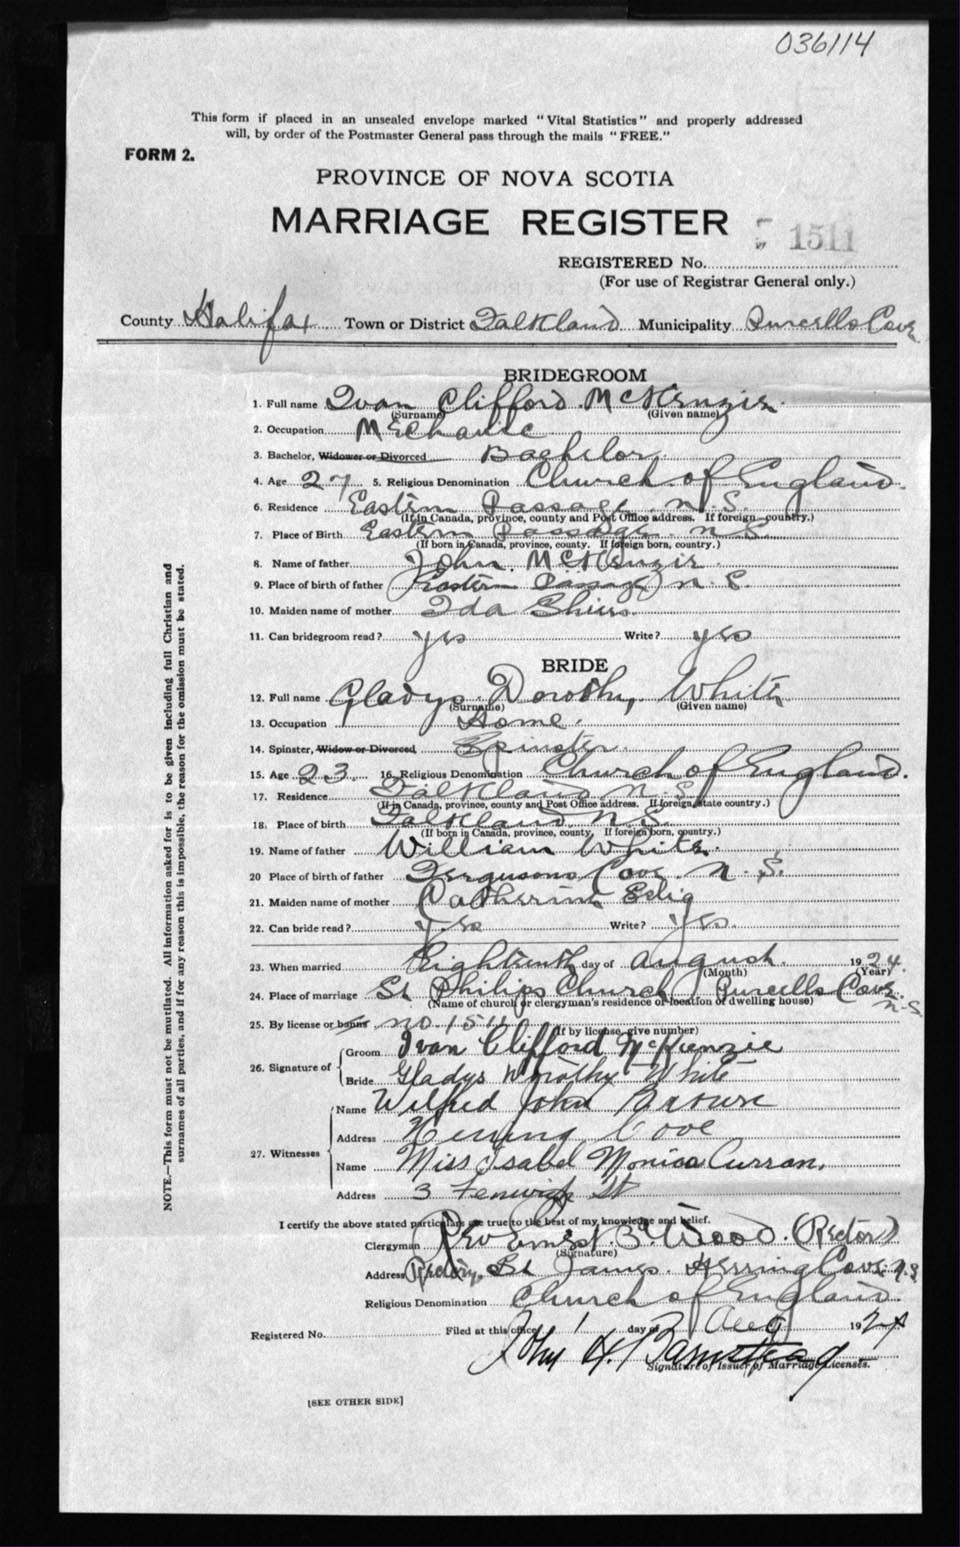 036114
This form if placed in an unsealed envelope marked "Vital Statistics" and properly addressed
will, by order of the Postmaster General pass through the mails "FREE."
FORM 2.
PROVINCE OF NOVA SCOTIA
MARRIAGE REGISTER
1511
REGISTERED No.
(For use of Registrar General only.)
County Halifax Town or District Falkland Municipality Purcells Cove
BRIDEGROOM
1. Full name Ivan Clifford McKenzie
(Surname) (Given name)
2. Occupation Mechanic
3. Bachelor, Widower or Divorced Bachelor
4. Age 27 5. Religious Denomination Church of England.
6. Residence Eastern Passage N.S.
(If in Canada, province, county and Post Office address. If foreign country.)
7. Place of Birth Eastern Passage N.S.
(If born in Canada, province, county. If foreign born, country.)
8. Name of father John McKenzie
9. Place of birth of father Eastern Passage N.S.
10. Maiden name of mother Ida
11. Can bridegroom read? yes Write? yes
BRIDE
12. Full name Gladys Dorothy White
(Surname) (Given name)
13. Occupation Home.
14. Spinster, Widow or Divorced Spinster.
15. Age 23. 16. Religious Denomination Church of England.
17. Residence Falkland N.S.
(If in Canada, province, county and Post Office address. If foreign, state country.)
18. Place of birth Falkland N.S.
(If born in Canada, province, county, If foreign born, country.)
19. Name of father William White.
20 Place of birth of father Fergusons Cove N.S.
21. Maiden name of mother Catherine
22. Can bride read? Yes Write? Yes.
23. When married Eighteenth day of August 1924.
(Month) (Year)
24. Place of marriage St Philips Church Purcells Cove N.S.
(Name of church or clergyman's residence or location of dwelling house)
25. By license or banns no 1511 (If by license, give number)
26. Signature of
Groom Ivan Clifford McKenzie
Bride Gladys Dorothy White
27. Witnesses
Name Wilfred John Brown
Address Herring Cove
Name Miss Isabel Monica Curran,
Address 3 Fenwick St
I certify the above stated particulars are true to the best of my knowledge and belief.
Clergyman Rev Ernest B. Wood. (Rector)
(Signature)
Address Rectory, St James. Herring Cove N.S
Religious Denomination Church of England.
Registered No. Filed at this office 1 day of Aug 1924
John H. Barnstead
Signature of Issuer of Marriage Licenses.
[SEE OTHER SIDE]
NOTE.—This form must not be mutilated. All information asked for is to be given including full Christian and
surnames of all parties, and if for any reason this is impossible, the reason for the omission must be stated.